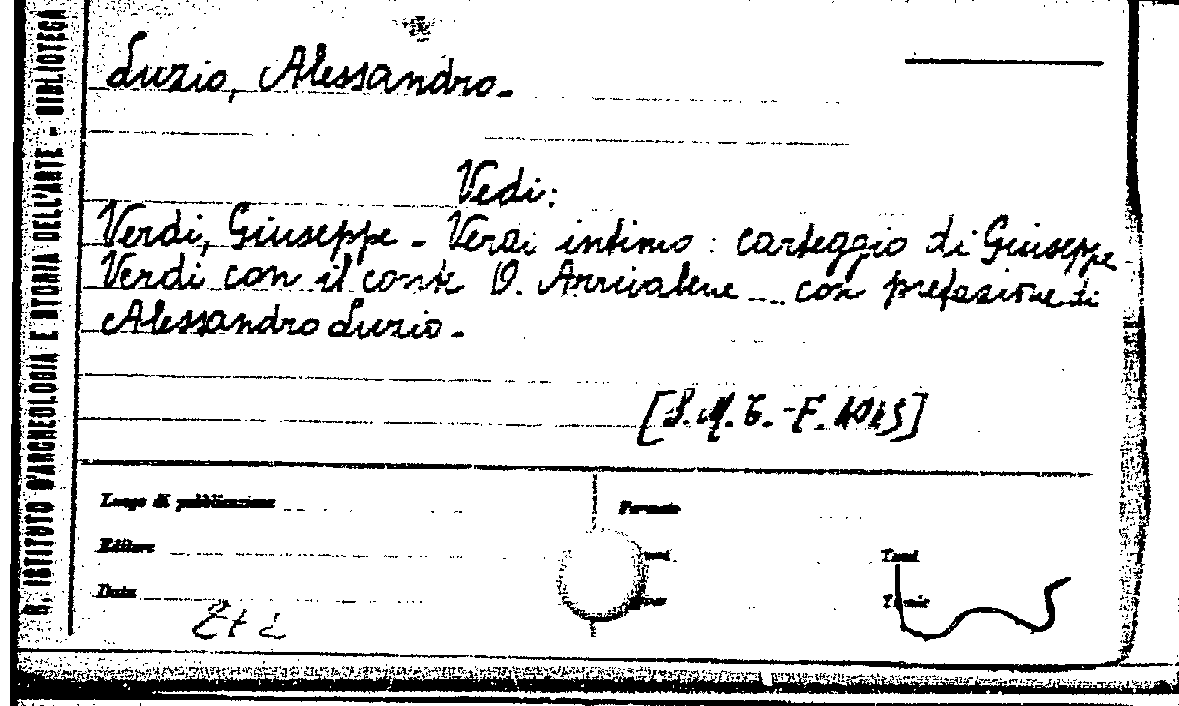 R. ISTITUTO D'ARCHEOLOGIA E STORIA DELL'ARTE - BIBLIOTECA
Luzio, Alessandro.-
Vedi:
Verdi, Giuseppe - Verdi intimo : carteggio di Giuseppe
Verdi con il conte O. Arrivabene ... con prefazione di
Alessandro Luzio.-
Luogo di pubblicazione
Formato
Editore
Tomi
Data